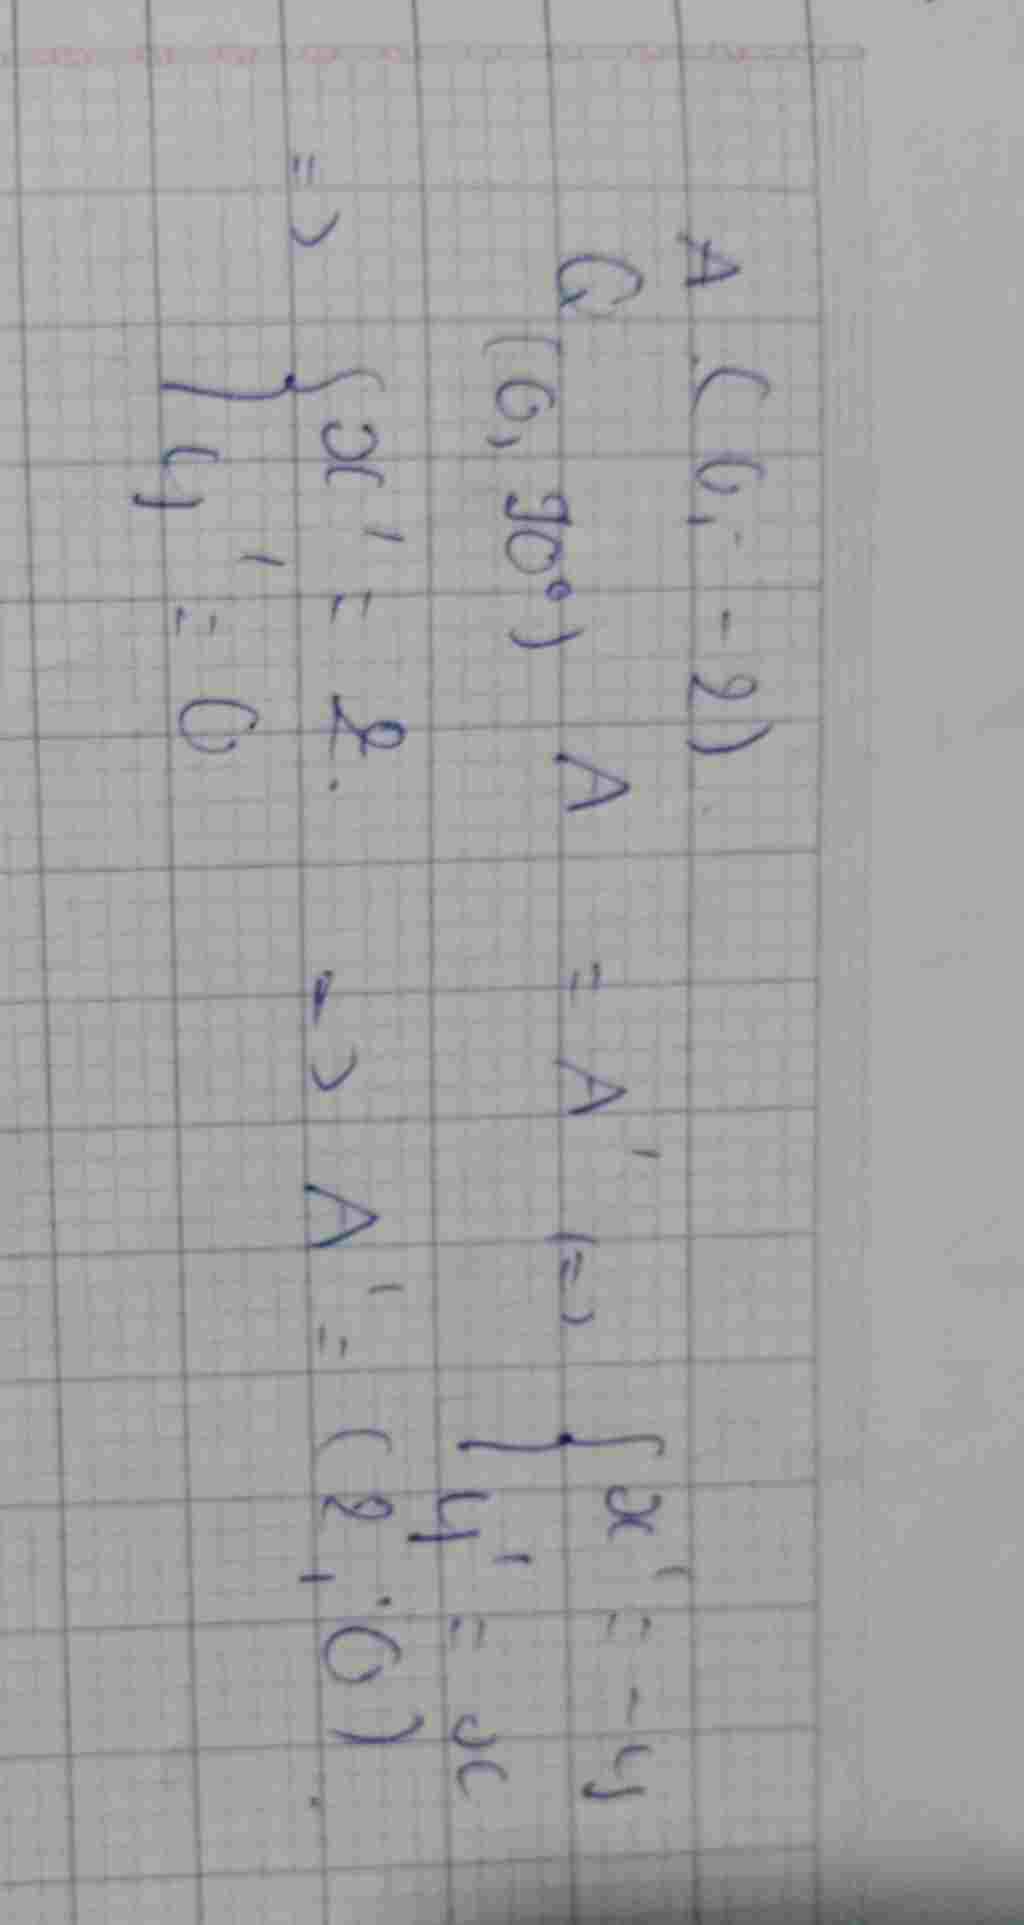 A (0, -2)
Q (O, 90°) A = A' (=) { x' = -y
y' = x
=> { x' = 2 => A' = (2, 0)
y' = 0